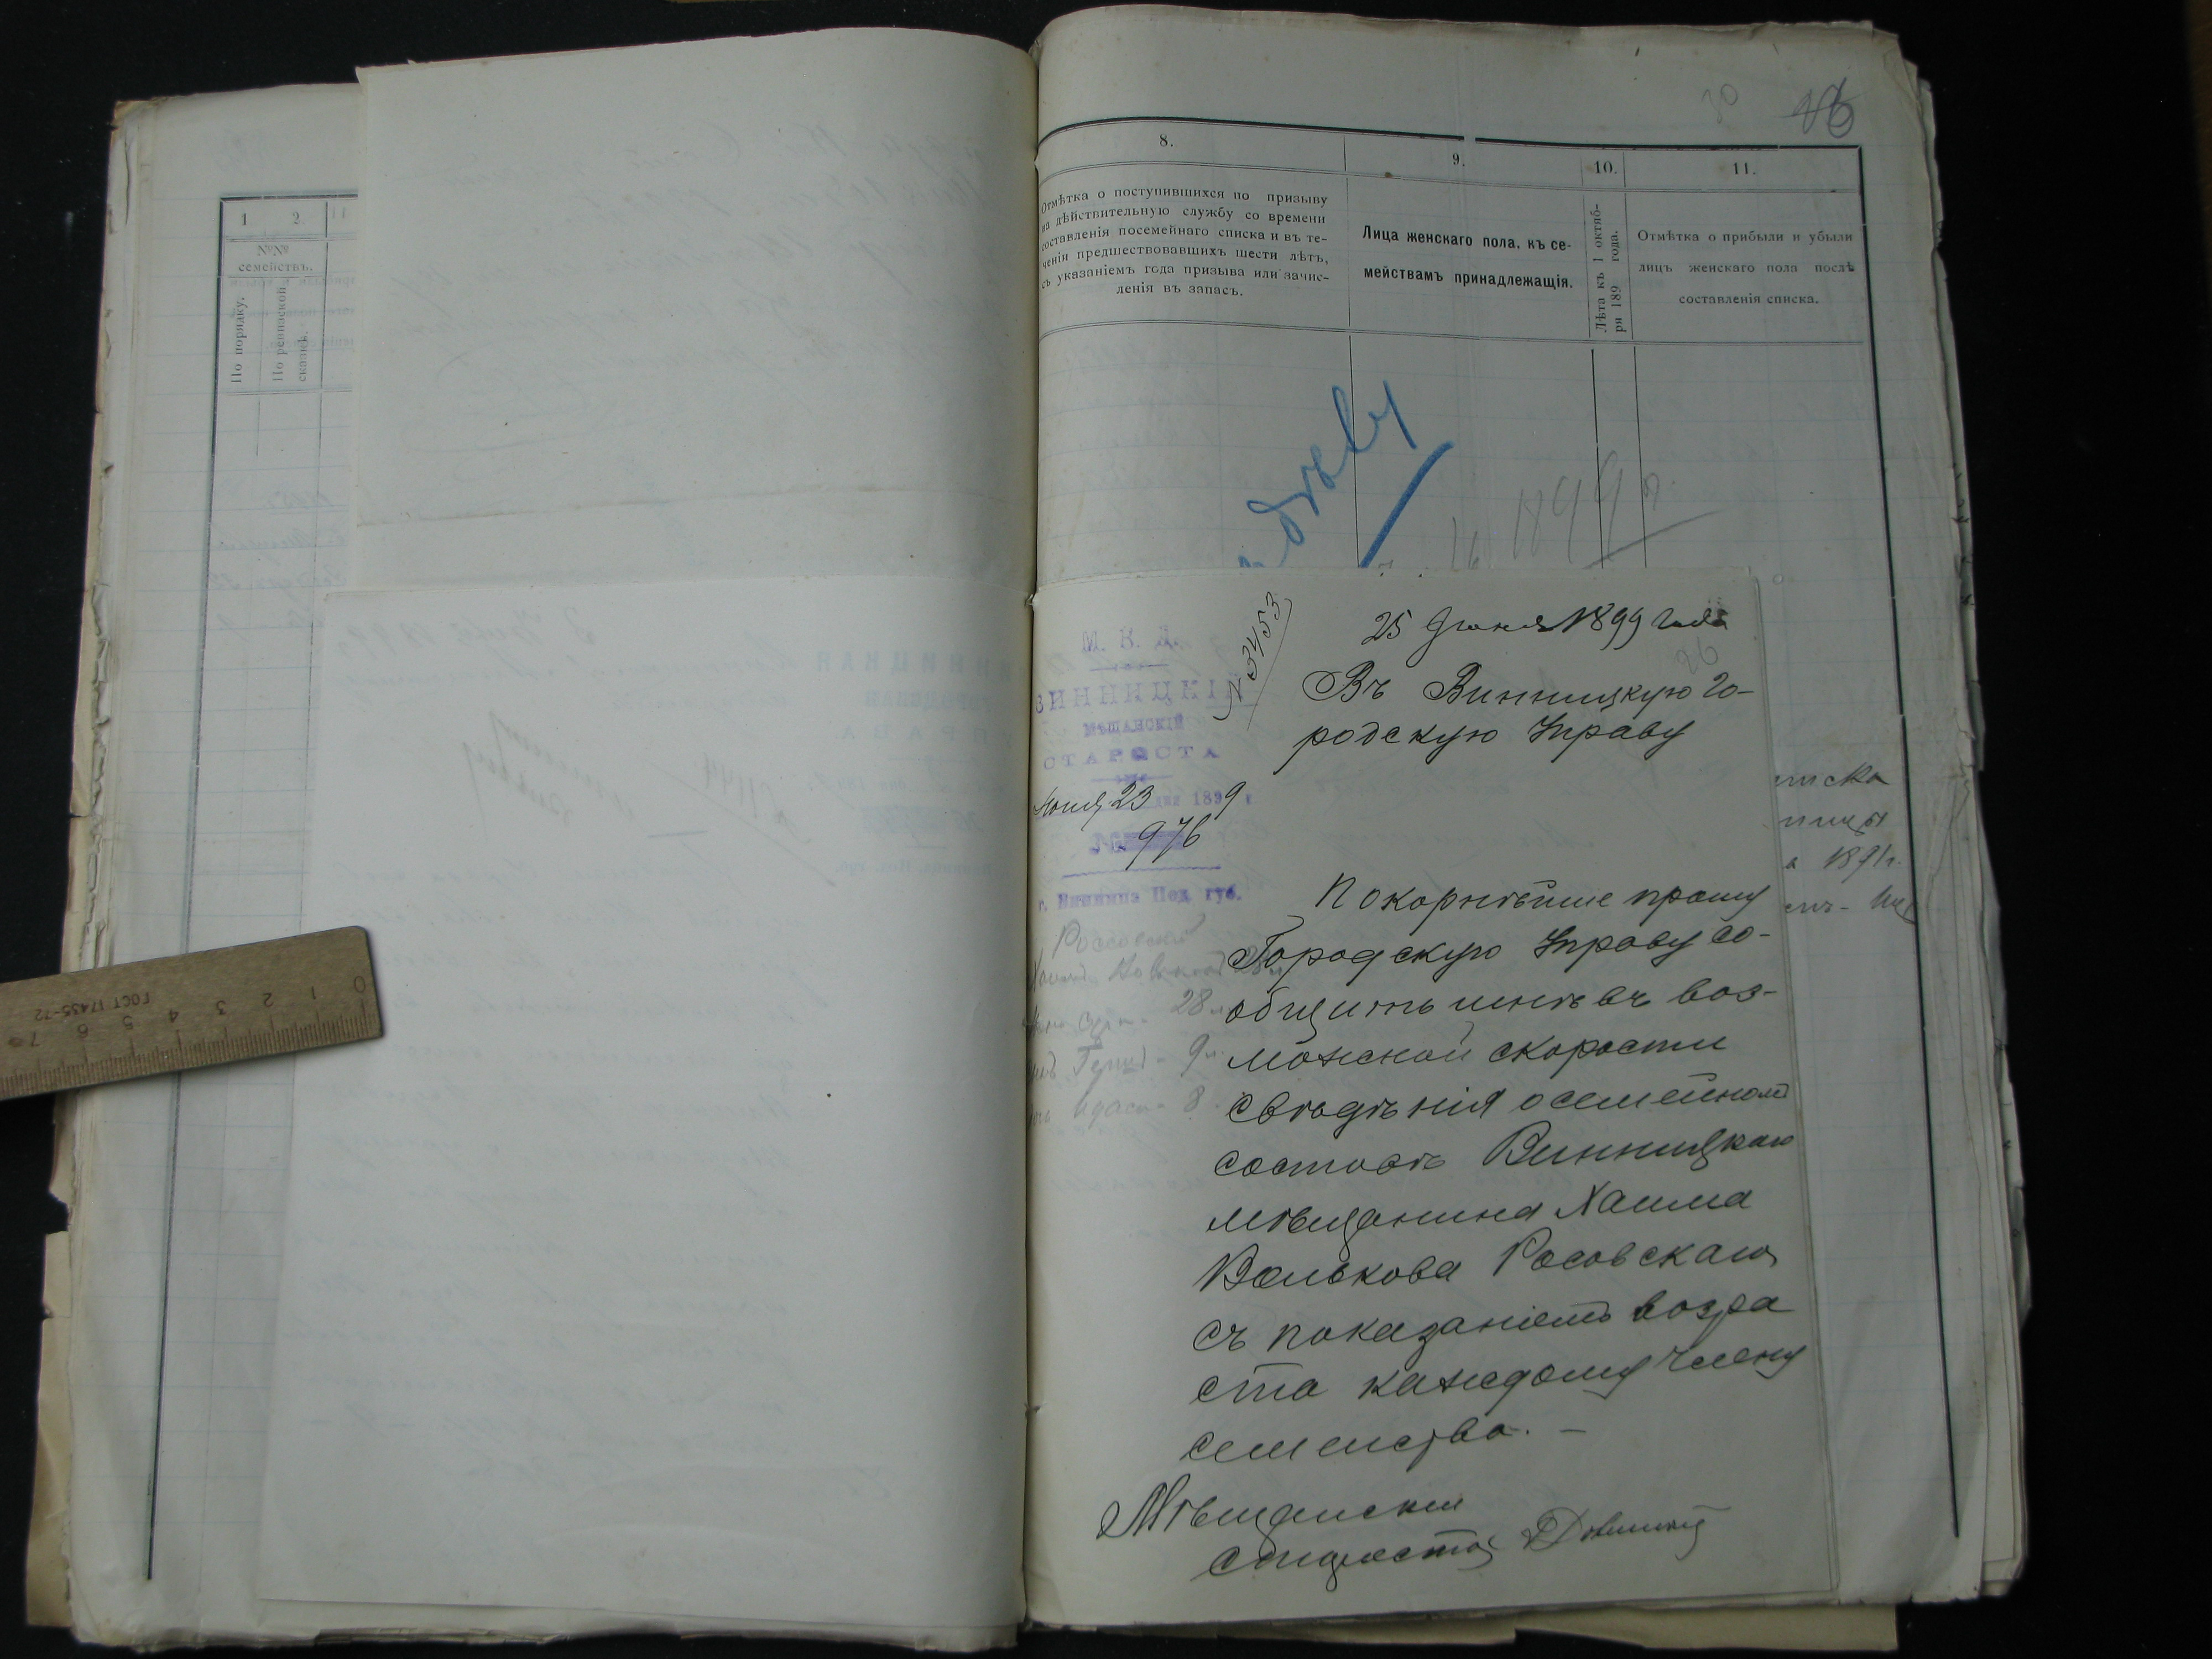 1
2.
№№
семействъ.
По порядку.
По ревизской
сказкѣ.
30
8.
Отмѣтка о поступившихся по призыву
на дѣйствительную службу со времени
составленія посемейнаго списка и въ те-
ченіи предшествовавшихъ шести лѣтъ,
съ указаніемъ года призыва или зачис-
ленія въ запасъ.
9.
Лица женскаго пола, къ се-
мействамъ принадлежащія.
10.
Лѣта къ 1 октяб-
ря 189 года.
11.
Отмѣтка о прибыли и убыли
лицъ женскаго пола послѣ
составленія списка.
1899 г.
М. В. Д.
ВИННИЦКІЙ
МѢЩАНСКІЙ
СТАРОСТА
Іюня 23 дня 1899 г.
№ 976
г. Винница Под. губ.
№ 3453
25 Іюня 1899 года
26
Въ Винницкую Го-
родскую Управу
Покорнѣйше прошу
Городскую Управу со-
общить мнѣ въ воз-
можной скорости
свѣдѣнія о семейномъ
составѣ Винницкаго
мѣщанина Хаима
Волькова Росовскаго
съ показаніемъ возра
ста каждому члену
семейства. —
Мѣщанскій
Староста
28
9
8
1891 г.
0 1 2 3 4 5 6 7
ГОСТ 17435-72